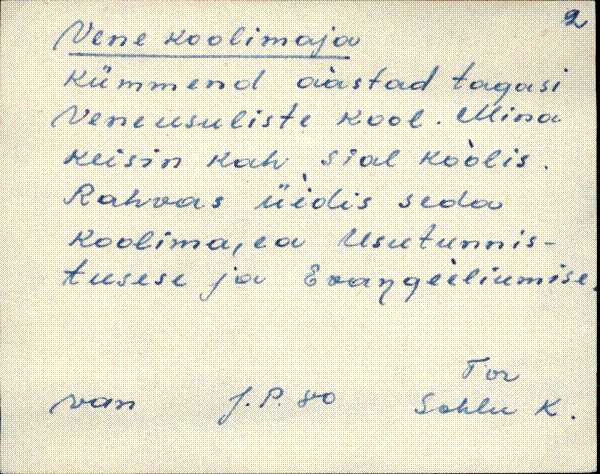 2
Vene koolimaja
Kümmend àastad tagasi
Veneusuliste kool. Mina
keisin kah sial kòolis.
Rahvas üìdis seda
koolima,ea Usutunnis-
tusese ja Evangèeliumise.
Tor
van J.P. 80 Sohlu K.